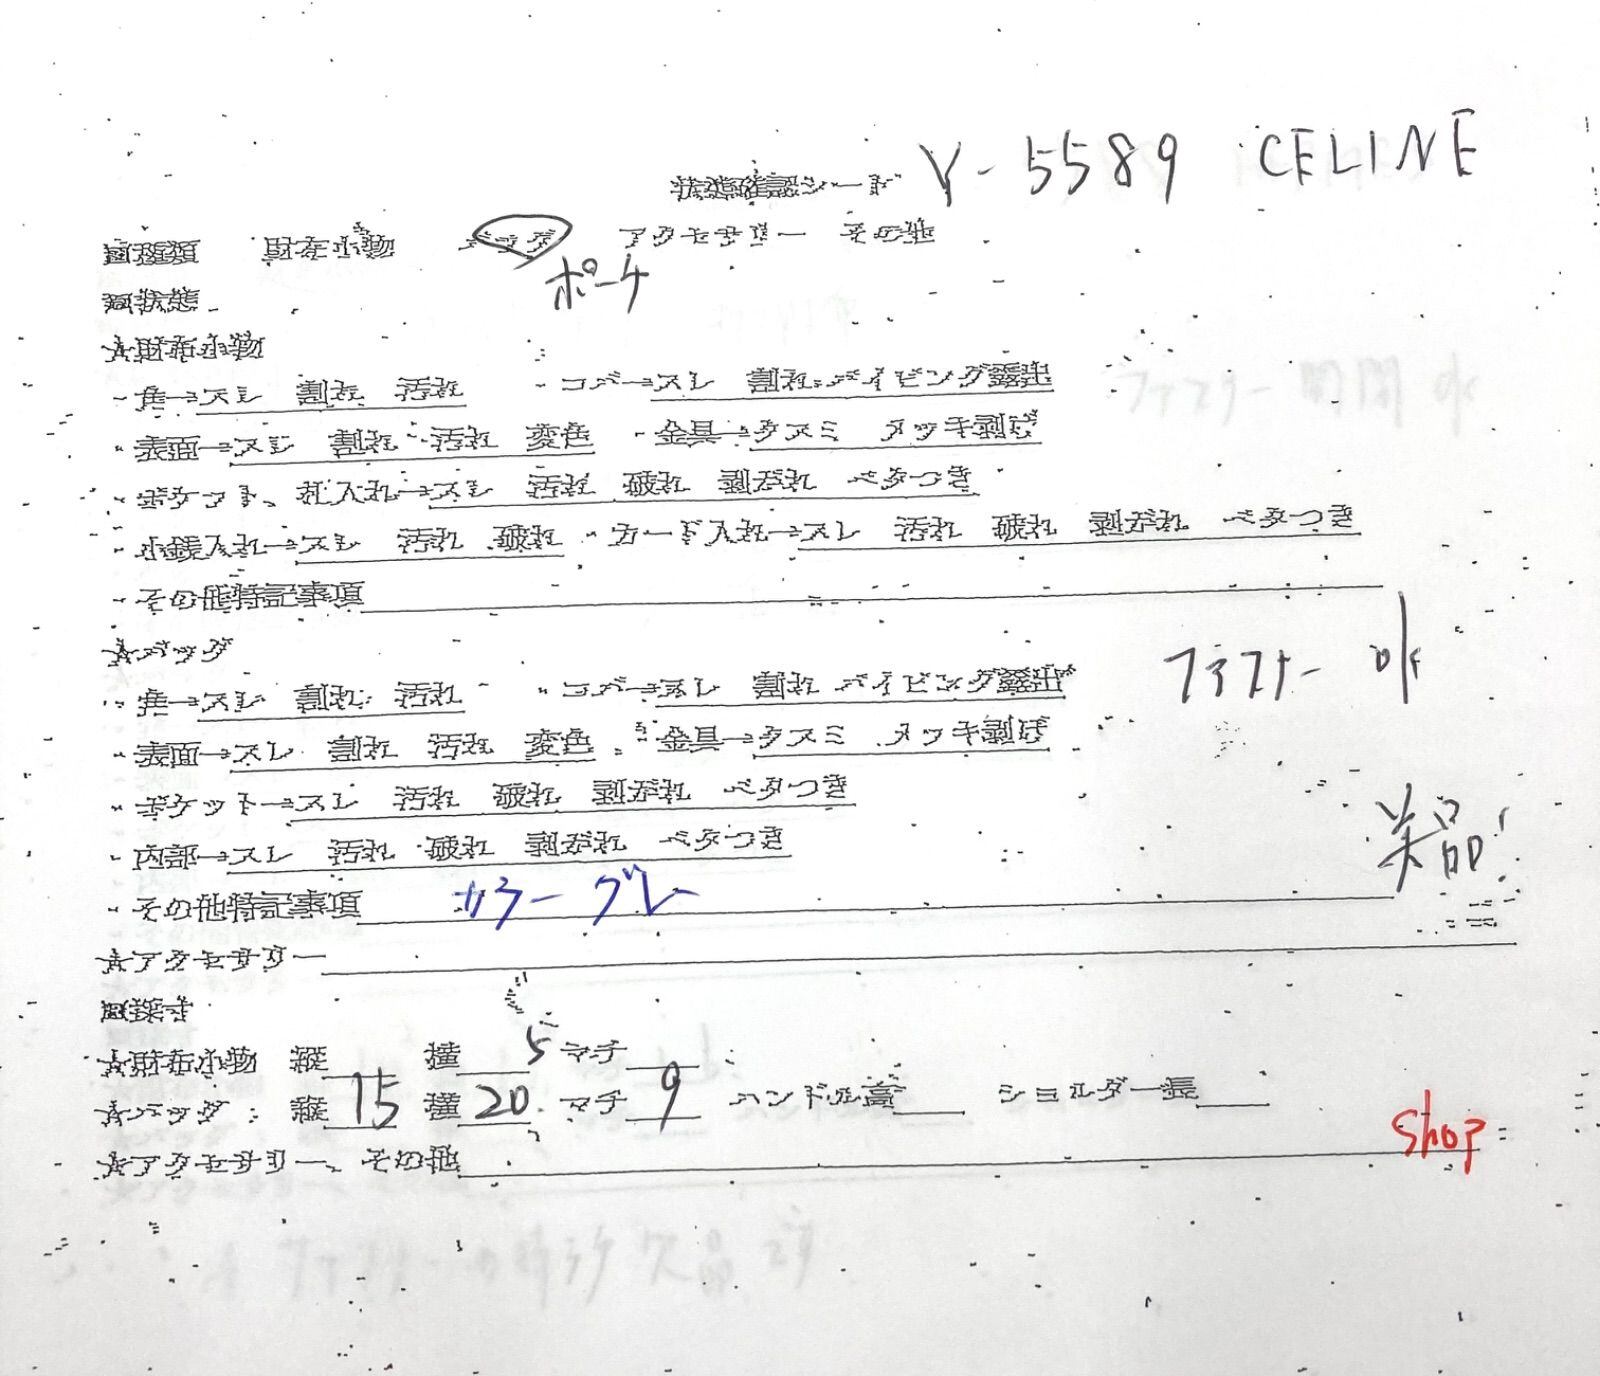 状態確認シート Y-5589 CELINE
■種類 財布小物 バッグ アクセサリー その他
ポーチ
■状態
★財布小物
・角→スレ 割れ 汚れ ・コバ→スレ 割れ パイピング露出
・表面→スレ 割れ 汚れ 変色 ・金具→クスミ メッキ剥げ
・ポケット、札入れ→スレ 汚れ 破れ 剥がれ ベタつき
・小銭入れ→スレ 汚れ 破れ ・カード入れ→スレ 汚れ 破れ 剥がれ ベタつき
・その他特記事項
★バッグ
・角→スレ 割れ 汚れ ・コバ→スレ 割れ パイピング露出 ファスナー
・表面→スレ 割れ 汚れ 変色 ・金具→クスミ メッキ剥げ
・ポケット→スレ 汚れ 破れ 剥がれ ベタつき
・内部→スレ 汚れ 破れ 剥がれ ベタつき 美品
・その他特記事項 カラー グレー
★アクセサリー
■採寸
★財布小物 縦 横 マチ
★バッグ:縦 15 横 20.5 マチ 9 ハンドル高 ショルダー長
★アクセサリー、その他 shop